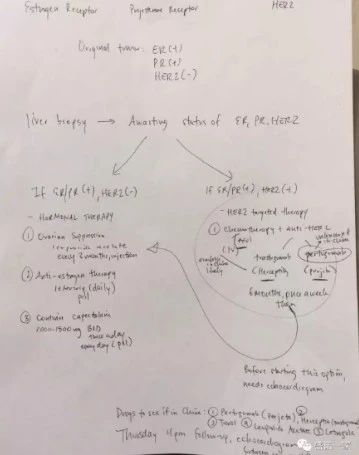 Estrogen Receptor Progesterone Receptor HER2
Original tumor ER(+)
PR(+)
HER2(-)
liver biopsy → Awaiting status of ER, PR, HER2
If ER/PR(+), HER2(-)
- HORMONAL THERAPY
① Ovarian Suppression
Leuprolide acetate
every 3 months, injection
② Anti-estrogen therapy
letrozole (daily)
pill
③ Continue capecitabine
BID
twice a day
every day (pill)
If ER/PR(+), HER2(+)
- HER2 targeted therapy
① Chemotherapy + anti-HER2
taxol
(IV)
trastuzumab
(Herceptin)
pertuzumab
(Perjeta)
available in China
likely
in China
6 months, once a week
then
Before starting this option,
needs echocardiogram
Drugs to see if in China: ① Pertuzumab (Perjeta) ② Herceptin (trastuzumab)
③ Taxol ④ Leuprolide Acetate ⑤ Letrozole
Thursday 4pm follow-up, echocardiogram